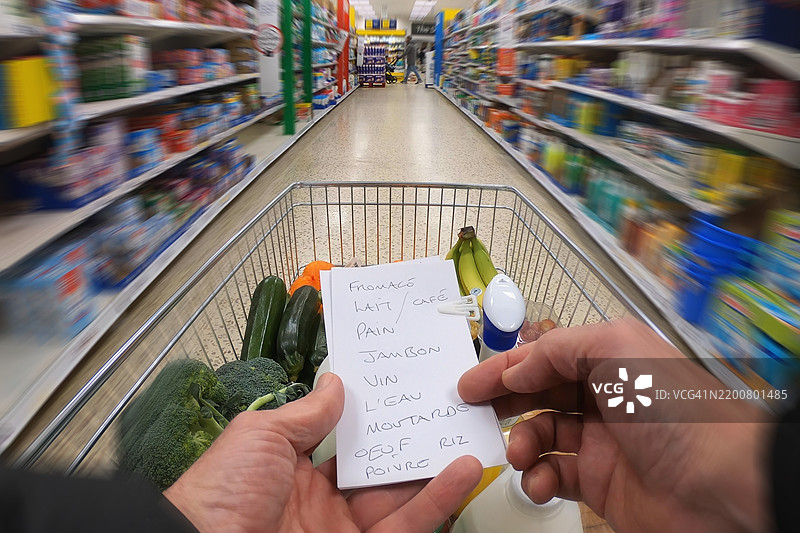 FROMAGE
LAIT / CAFÉ
PAIN
JAMBON
VIN
L'EAU
MOUTARDE
OEUF RIZ
POIVRE
VCG
VCG41N2200801485